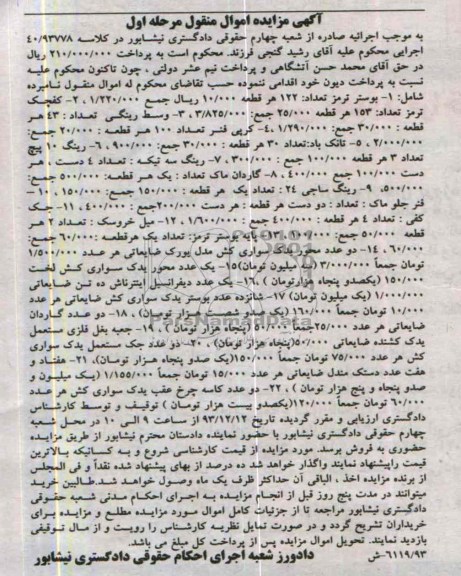 آگهی مزایده اموال منقول مرحله اول
به موجب اجرائیه صادره از شعبه چهارم حقوقی دادگستری نیشابور در کلاسه ۴۰/۹۳۷۷۸
اجرایی محکوم علیه آقای رشید گنجی فرزند. محکوم است به پرداخت ۲۱۰/۰۰۰/۰۰۰ ریال
در حق آقای محمد حسن آتشگاهی و پرداخت نیم عشر دولتی ، چون تاکنون محکوم علیه
نسبت به پرداخت دیون خود اقدامی ننموده حسب تقاضای محکوم له اموال منقول نامبرده
شامل: ۱- بوستر ترمز تعداد: ۱۲۲ هر قطعه ۱۰/۰۰۰ ریال جمع ۱/۲۲۰/۰۰۰ ، ۲- کفچک
ترمز تعداد: ۱۵۳ هر قطعه ۲۵/۰۰۰ جمع: ۳/۸۲۵/۰۰۰، ۳- وسط رینگی تعداد : ۴۳ هر
قطعه : ۳۰/۰۰۰ جمع: ۱/۲۹۰/۰۰۰ ،۴- کرپی فنر تعداد ۱۰۰ هر قطعه : ۲۰/۰۰۰ جمع:
۲/۰۰۰/۰۰۰ ، ۵- تانک باد:تعداد ۳۰ هر قطعه : ۳۰/۰۰۰ جمع: ۹۰۰/۰۰۰ ، ۶- رینگ ۱۰ پیچ
تعداد ۳ هر قطعه ۱۰۰/۰۰۰ جمع : ۳۰۰/۰۰۰ ، ۷- رینگ سه تیکه : تعداد ۴ دست هر
دست ۱۰۰/۰۰۰ جمع ۴۰۰/۰۰۰ ، ۸- گاردان ماک تعداد : یک هر قطعه: ۵۰۰/۰۰۰ جمع:
۵۰۰/۰۰۰، ۹- رینگ ساچی ۲۴ : تعداد یک هر قطعه : ۱۵۰/۰۰۰ جمع: ۱۵۰/۰۰۰ ، ۱۰-
فنر جلو ماک : تعداد : دو دست هر قطعه : هر دست ۲۰۰/۰۰۰جمع : ۴۰۰/۰۰۰ ، ۱۱- جک
کفی : تعداد ۴ هر قطعه : ۴۰۰/۰۰۰ جمع : ۱/۶۰۰/۰۰۰ ، ۱۲- میل خروسک : تعداد ۲ هر
قطعه ۵۰/۰۰۰ جمع: ۱۰۰/۰۰۰ ،۱۳- پایه بوستر ترمز: تعداد یک هرقطعه :۶۰/۰۰۰ جمع:
۶۰/۰۰۰ ، ۱۴- دو عدد محور یدک سواری کش مدل یورک ضایعاتی هر عدد ۱/۵۰۰/۰۰۰
تومان جمعاً ۳/۰۰۰/۰۰۰ (سه میلیون تومان)۱۵- یک عدد محور یدک سواری کش لخت
۱۵۰/۰۰۰ (یکصدو پنجاه هزارتومان) ،۱۶- یک عدد دیفرانسیل اینترناش ده تن ضایعاتی
۱/۰۰۰/۰۰۰ (یک میلیون تومان) ۱۷- شانزده عدد بوستر یدک سواری کش ضایعاتی هر عدد
۱۰/۰۰۰ تومان جمعاً ۱۶۰/۰۰۰ (یک صدو شصت هزار تومان) ، ۱۸- دو عدد گاردان
ضایعاتی هر عدد ۲۵/۰۰۰جمعاً ۵۰/۰۰۰(پنجاه هزار تومان) ، ۱۹- جعبه بغل فلزی مستعمل
یدک کشنده ضایعاتی ۵۰/۰۰۰(پنجاه هزار تومان) ، ۲۰- دو عدد جک مستعمل یدک سواری
کش هر عدد ۷۵/۰۰۰ تومان جمعاً ۱۵۰/۰۰۰(یک صدو پنجاه هزار تومان)، ۲۱- هفتاد و
هفت عدد دستک مندل ضایعاتی هر عدد ۱۵/۰۰۰ تومان جمعاً ۱/۱۵۵/۰۰۰ (یک میلیون و
صدو پنجاه و پنج هزار تومان) ، ۲۲- دو عدد کاسه چرخ عقب یدک سواری کش هر عدد
۶۰/۰۰۰ تومان جمعاً ۱۲۰/۰۰۰(یکصدو بیست هزار تومان ) توقیف و توسط کارشناس
دادگستری ارزیابی و مقرر گردیده تاریخ ۹۳/۱۲/۱۲ از ساعت ۹ الی ۱۰ در محل شعبه
چهارم حقوقی دادگستری نیشابور با حضور نماینده دادستان محترم نیشابور از طریق مزایده
حضوری به فروش برسد. مورد مزایده از قیمت کارشناسی شروع و به کسانیکه بالاترین
قیمت راپیشنهاد نمایند واگذار خواهد شد ده درصد از بهای پیشنهاد شده نقداً و فی المجلس
از برنده مزایده اخذ ، الباقی آن حداکثر ظرف یک ماه وصول خواهد شد.طالبین خرید
میتوانند در مدت پنج روز قبل از انجام مزایده به اجرای احکام مدنی شعبه حقوقی
دادگستری نیشابور مراجعه تا از جزئیات کامل اموال مورد مزایده مطلع و مزایده برای
خریداران تشریح گردد و در صورت تمایل نظریه کارشناس را رویت و از مال توقیفی
بازدید نمایند. تحویل اموال مزایده پس از پرداخت کل مبلغ می باشد.
۶۱۱۹/۹۳-ش دادورز شعبه اجرای احکام حقوقی دادگستری نیشابور